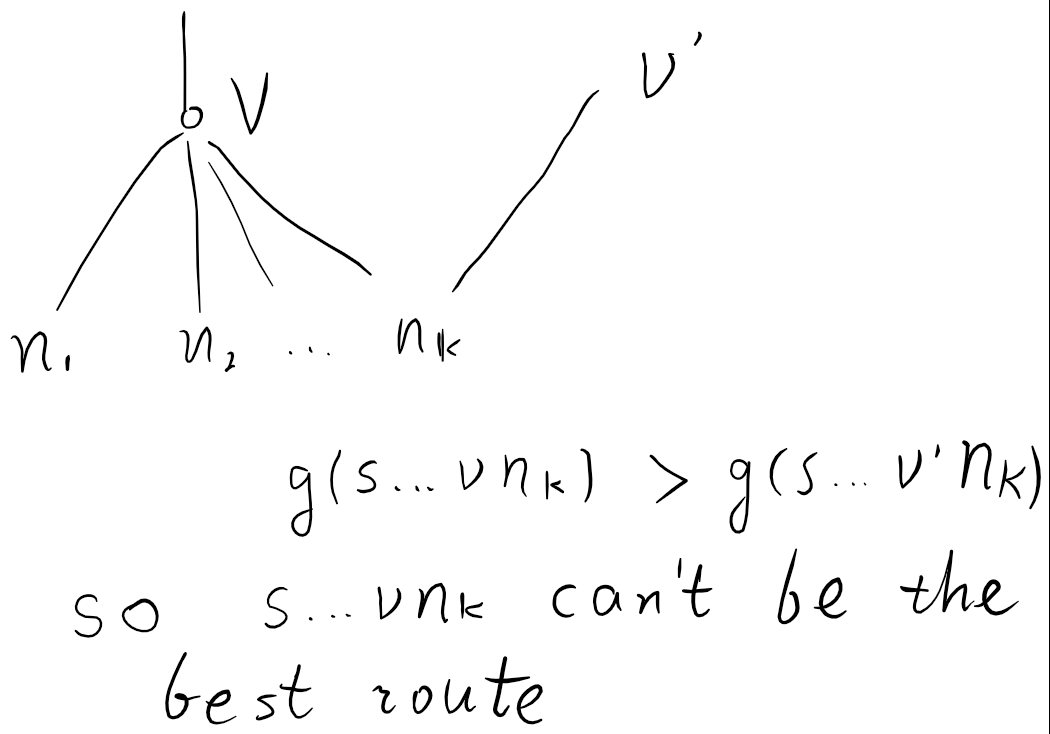 V
ν'
n₁ n₂ ... nₖ
g(s...νnₖ) > g(s...ν'nₖ)
so s...νnₖ can't be the
best route